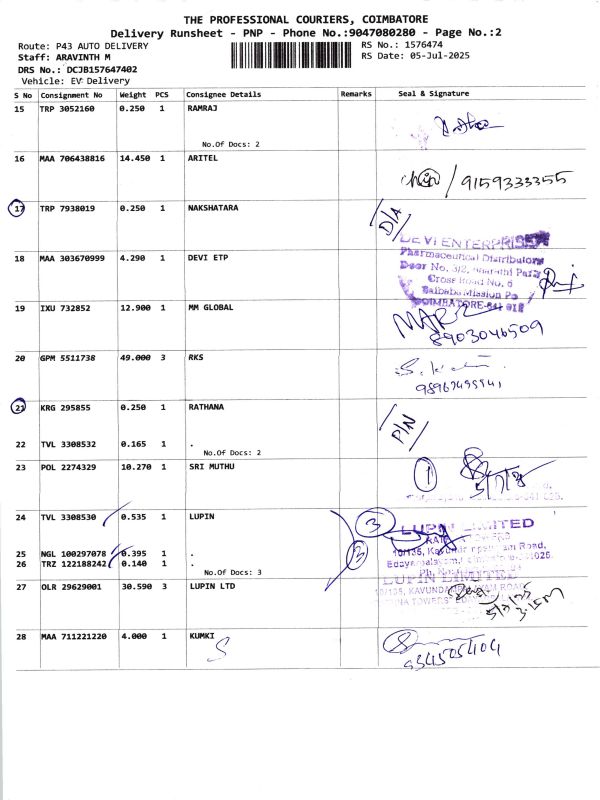 THE PROFESSIONAL COURIERS, COIMBATORE
Delivery Runsheet - PNP - Phone No.:9047080280 - Page No.:2
Route: P43 AUTO DELIVERY
RS No.: 1576474
Staff: ARAVINTH M
RS Date: 05-Jul-2025
DRS No.: DCJB157647402
Vehicle: EV Delivery
S No Consignment No Weight PCS Consignee Details Remarks Seal & Signature
15 TRP 3052160 0.250 1 RAMRAJ
No.Of Docs: 2
16 MAA 706438816 14.450 1 ARITEL
/ 9159333355
17 TRP 7938019 0.250 1 NAKSHATARA D/A
DEVI ENTERPRISES
Pharmaceutical Distributors
18 MAA 303670999 4.290 1 DEVI ETP
Door No. 3/2, Bharathi Park
Cross Road No. 6
Saibaba Mission Po
COIMBATORE-641
19 IXU 732852 12.900 1 MM GLOBAL
8903046509
20 GPM 5511738 49.000 3 RKS
21 KRG 295855 0.250 1 RATHANA
P/N
22 TVL 3308532 0.165 1 .
No.Of Docs: 2
23 POL 2274329 10.270 1 SRI MUTHU 1
24 TVL 3308530 0.535 1 LUPIN 3
LUPIN LIMITED
25 NGL 100297078 0.395 1 . 3
10/135, Road,
26 TRZ 122188242 0.140 1 .
No.Of Docs: 3
LUPIN LIMITED
27 OLR 29629001 30.590 3 LUPIN LTD
10/135, ROAD
5/7/25
3.15
28 MAA 711221220 4.000 1 KUMKI
9345054404